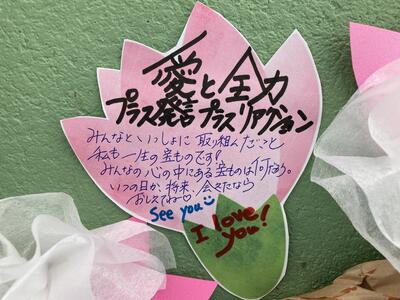 愛と全力
プラス発言プラスリアクション
みんなといっしょに取り組んだこと
私も一生の宝ものです!
みんなの心の中にある宝ものは何だろう。
いつの日か、将来、会えたなら
おしえてね♡
See you☺
I love
you!